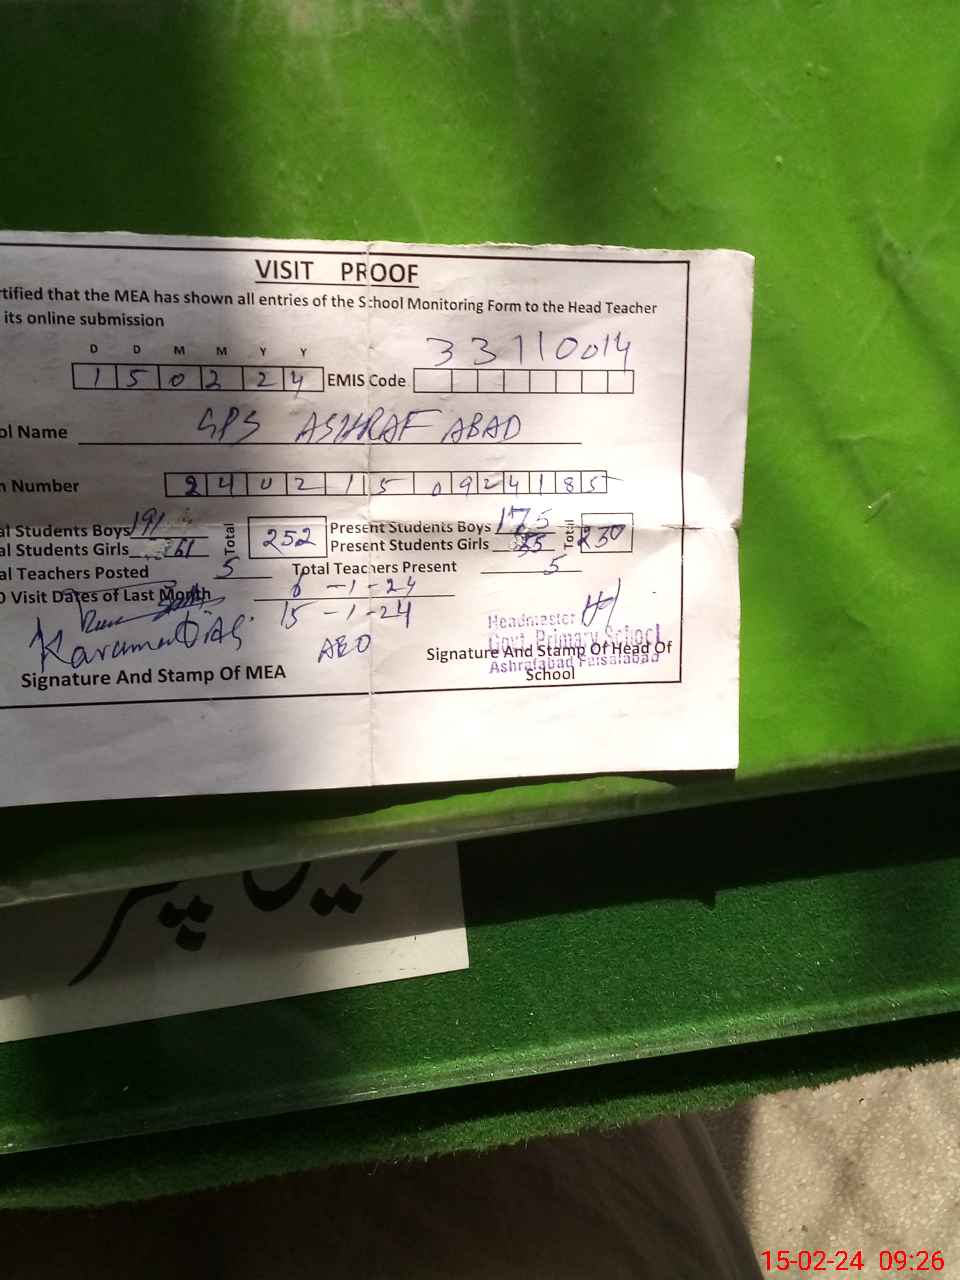 VISIT PROOF
rtified that the MEA has shown all entries of the School Monitoring Form to the Head Teacher
its online submission
D D M M Y Y
33110014
1 5 0 2 2 4 EMIS Code
ol Name GPS ASHRAF ABAD
n Number 2 4 0 2 1 5 0 9 2 4 1 8 5
al Students Boys 191 Total 252 Present Students Boys 175 Total 230
al Students Girls 61 Present Students Girls 55
al Teachers Posted 5 Total Teachers Present 5
O Visit Dates of Last Month 6-1-24
15-1-24
AEO
Headmaster
Govt. Primary School
Ashrafabad Faisalabad
Signature And Stamp Of MEA
Signature And Stamp Of Head Of
School
15-02-24 09:26